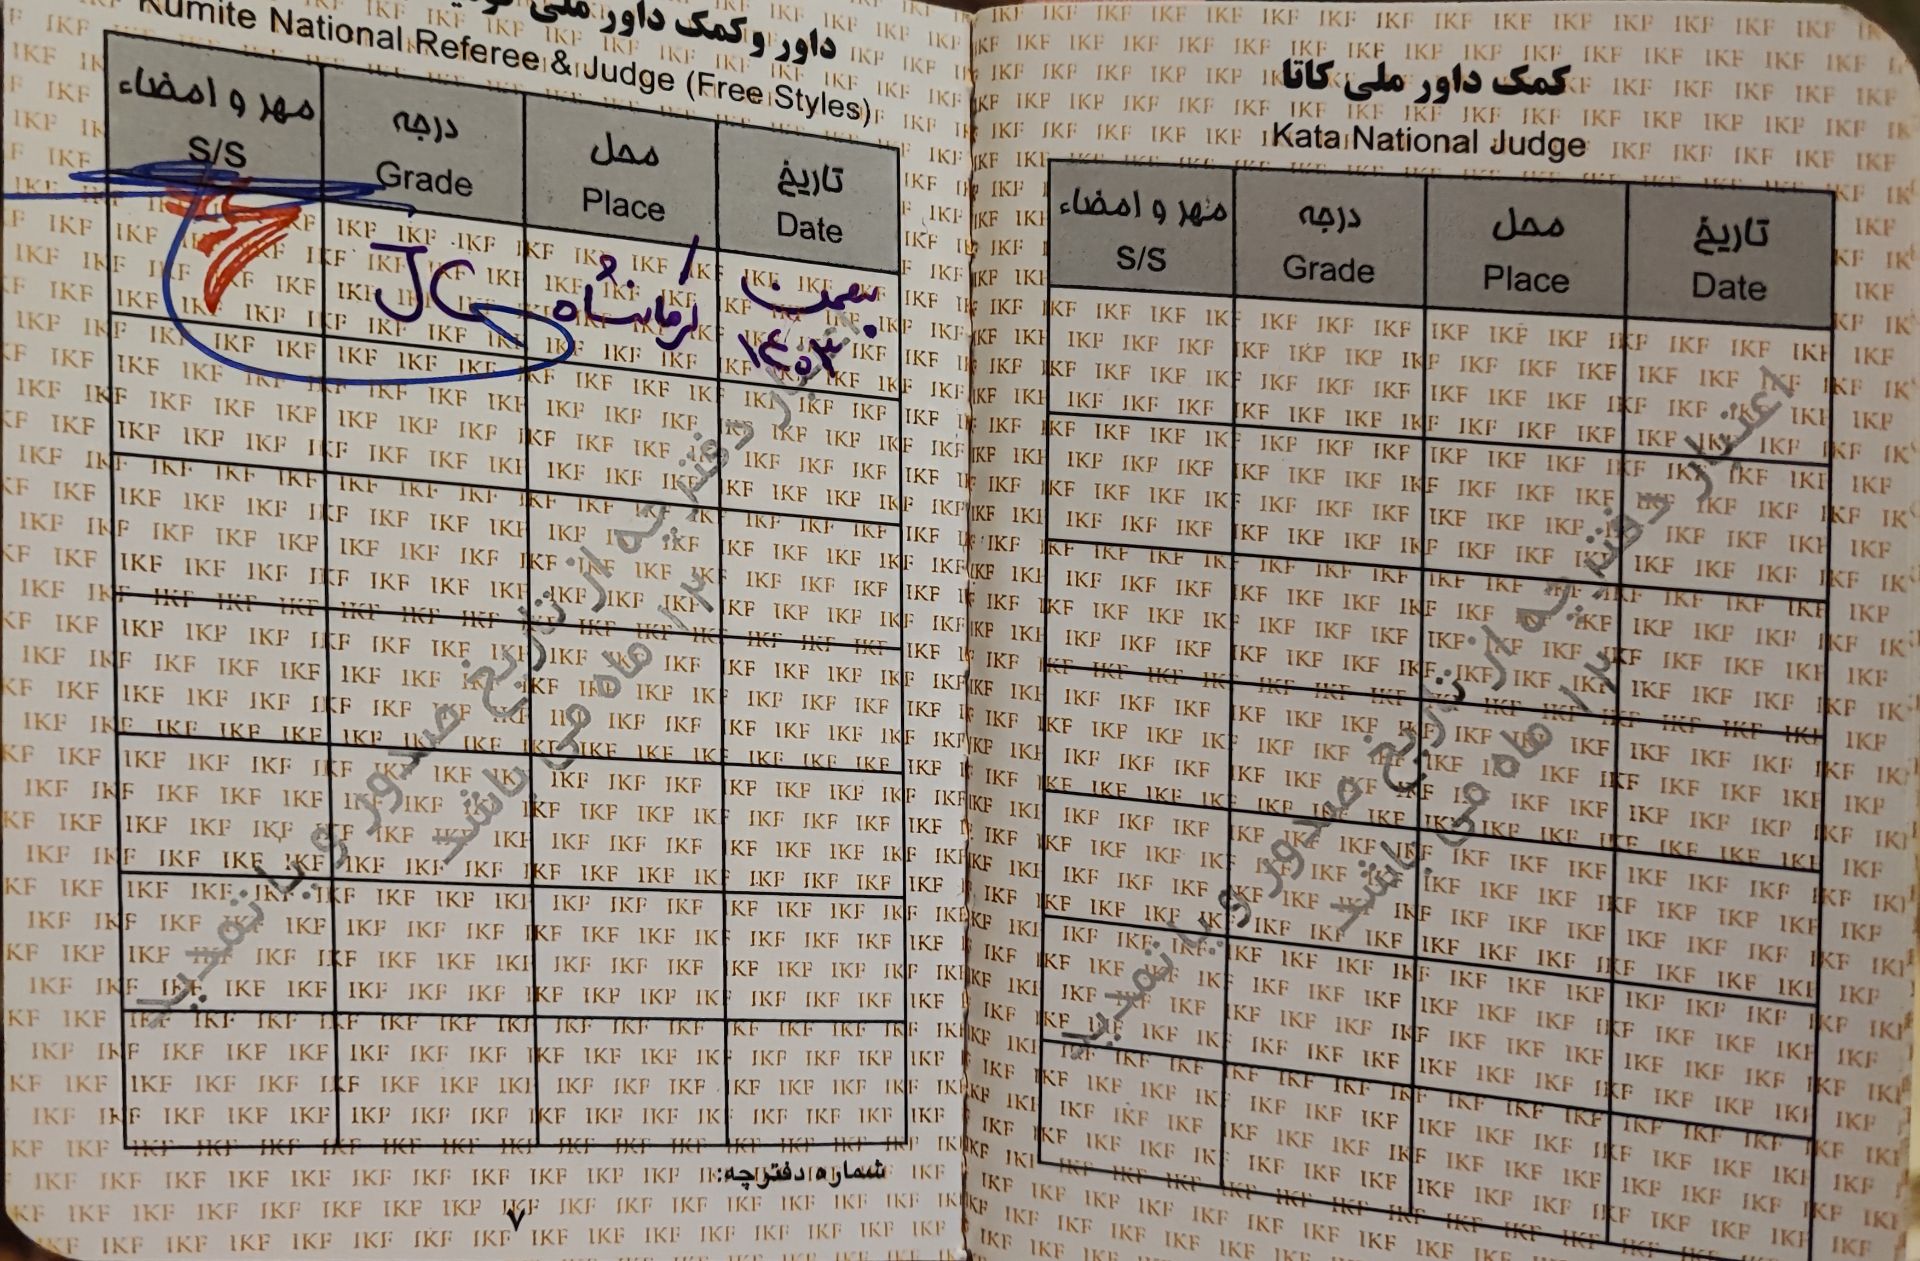 داور و کمک داور ملی
Kumite National Referee & Judge (Free Styles)
تاریخ محل درجه مهر و امضاء
Date Place Grade S/S
بهمن ۱۴۰۳ کرمانشاه
اعتبار دفترچه از تاریخ صدور و یا تمدید
۱۲ ماه می باشد
شماره دفترچه:
۷
کمک داور ملی کاتا
Kata National Judge
تاریخ محل درجه مهر و امضاء
Date Place Grade S/S
اعتبار دفترچه از تاریخ صدور و یا تمدید
۱۲ ماه می باشد
IKF IKF IKF IKF IKF IKF